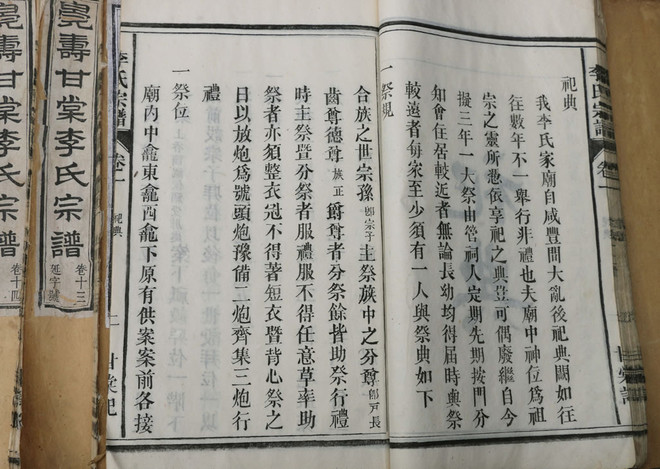 李氏宗譜 卷一
祀典
我李氏家廟自咸豐間大亂後祀典闕如往
往數年不一舉行非禮也夫廟中神位爲祖
宗之靈所憑依享祀之典豈可偶廢繼自今
擬三年一大祭由管祠人定期先期按門分
知會住居較近者無論長幼均得屆時與祭
較遠者每家至少須有一人與祭典如下
一祭規
合族之世宗孫卽宗子主祭族中之分尊卽戶長
齒尊德尊族正爵尊者分祭餘皆助祭行禮
時主祭暨分祭者服禮服不得任意草率助
祭者亦須整衣冠不得著短衣暨背心祭之
日以放炮爲號頭炮豫備二炮齊集三炮行
禮
一祭位
廟內中龕東龕西龕下原有供案案前各接
李氏宗譜 卷一 祀典
壽甘棠李氏宗譜 卷十三 延字號
壽甘棠李氏宗譜 卷十四